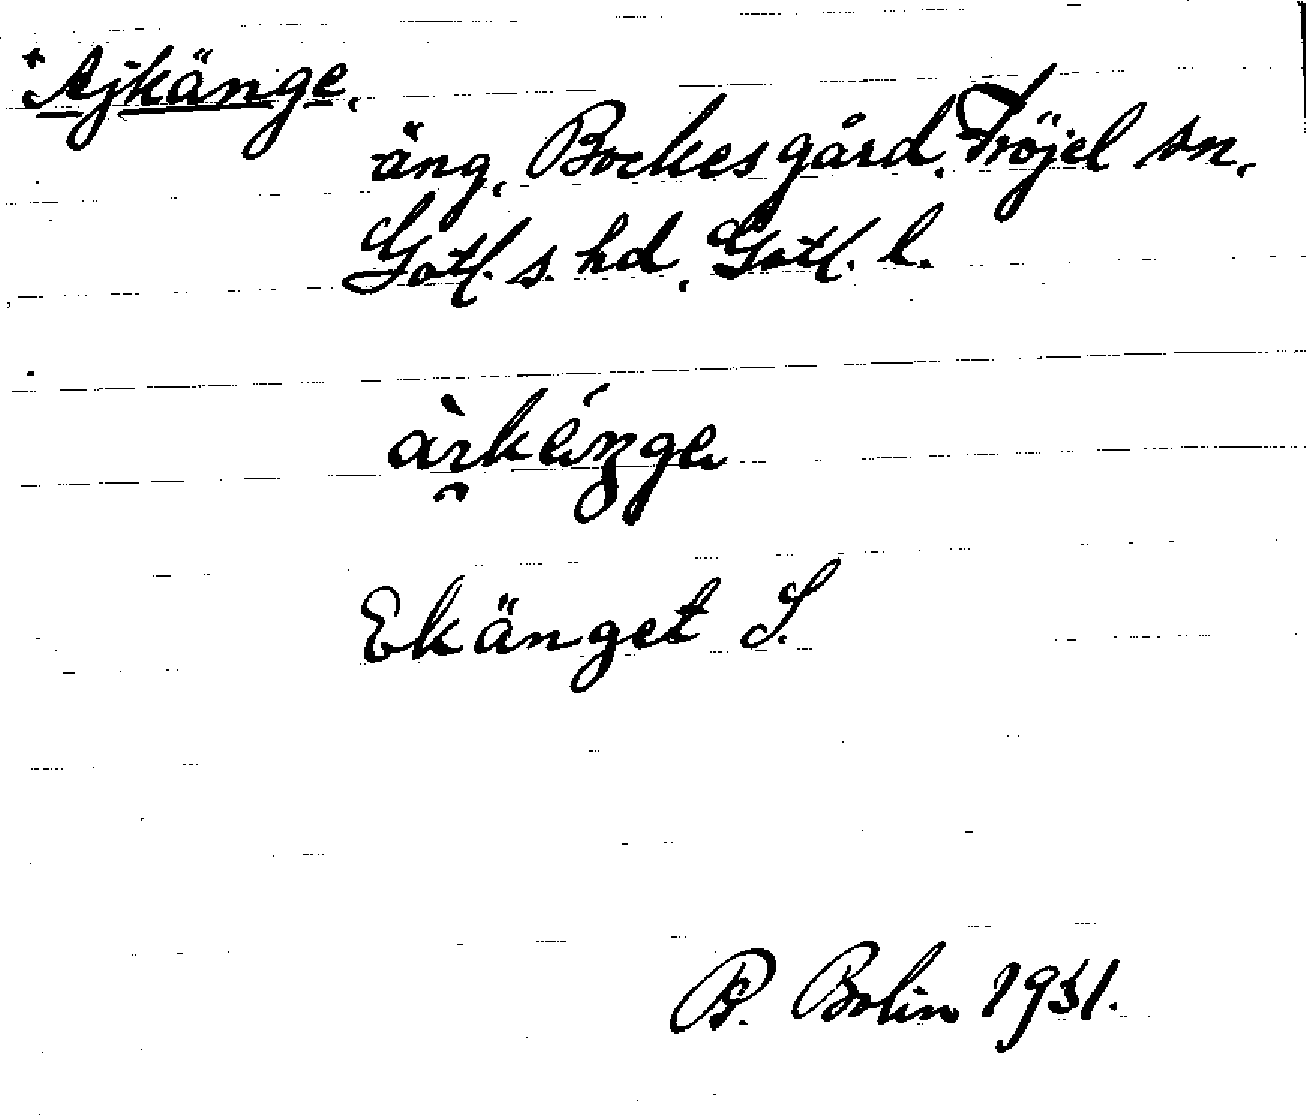 +Ajkänge,
äng, Bockesgård, Fröjel sn,
Gotl. s. hd, Gotl. l.
Ekänget S.
B. Bolin 1931.